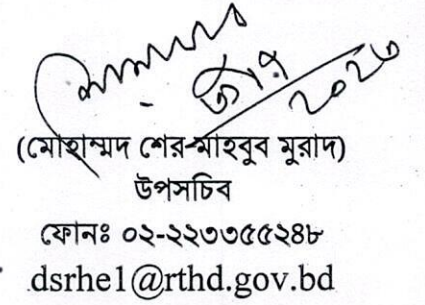 ২০২৩
(মোহাম্মদ শের-মাহবুব মুরাদ)
উপসচিব
ফোনঃ ০২-২২৩৩৫৫২৪৮
dsrhe1@rthd.gov.bd